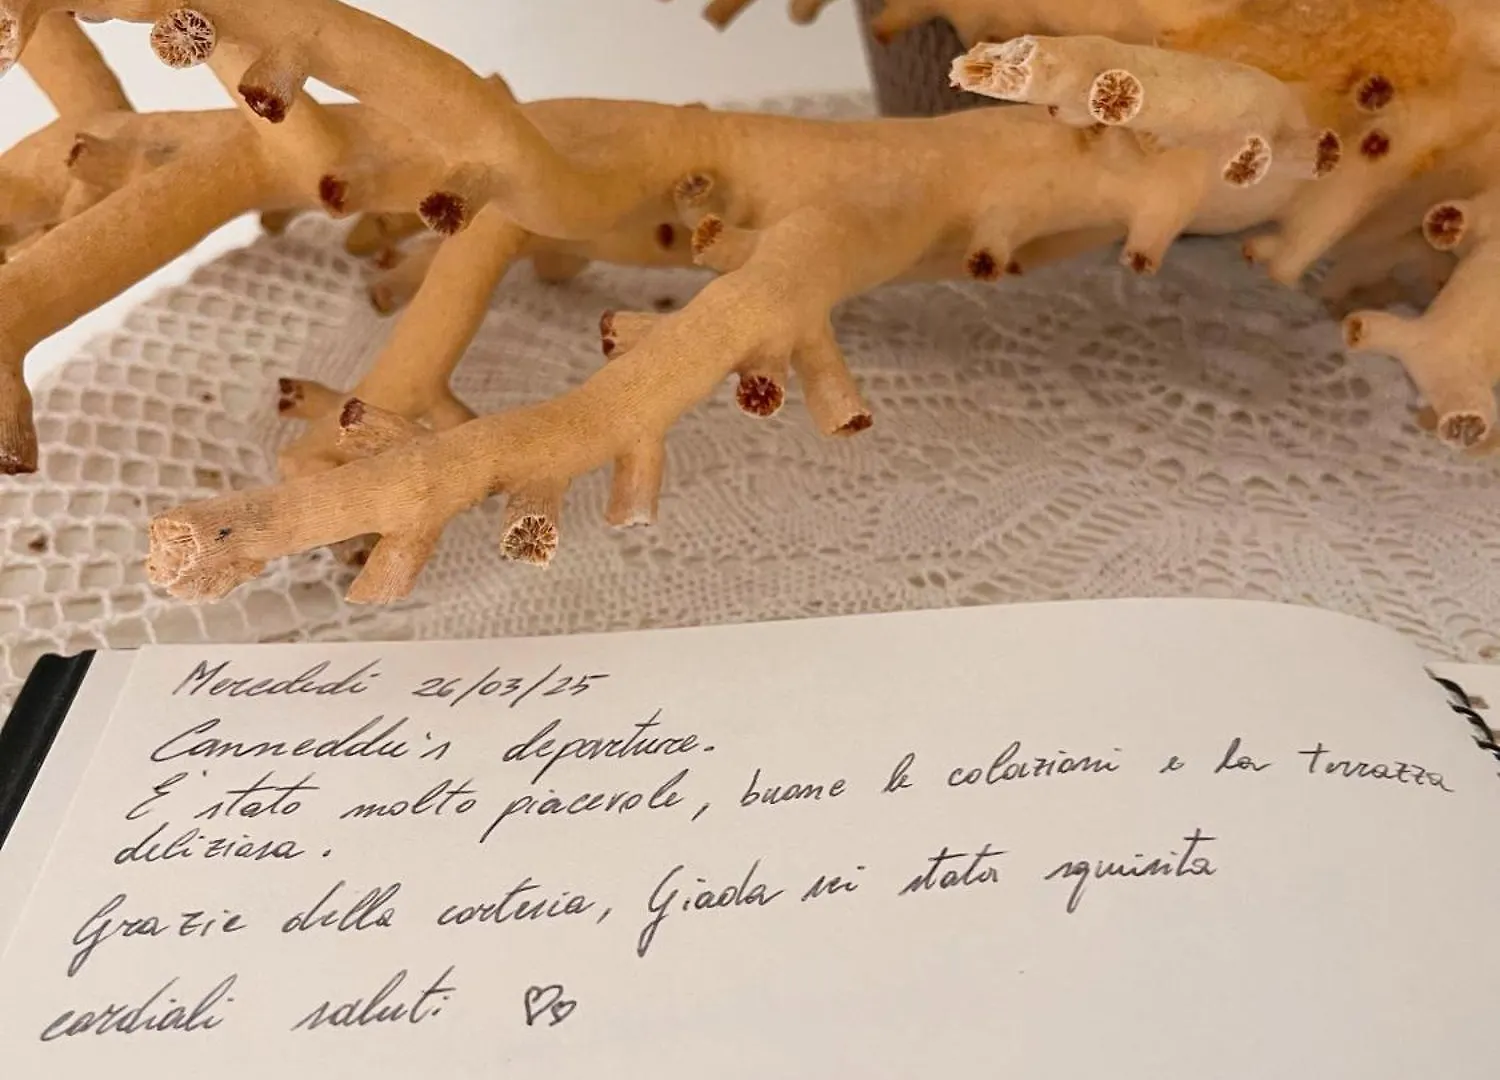 Mercoledì 26/03/25
Canneddu's departure.
E' stato molto piacevole, buone le colazioni e la terrazza
deliziosa.
Grazie della cortesia, Giada sei stata squisita
cordiali saluti